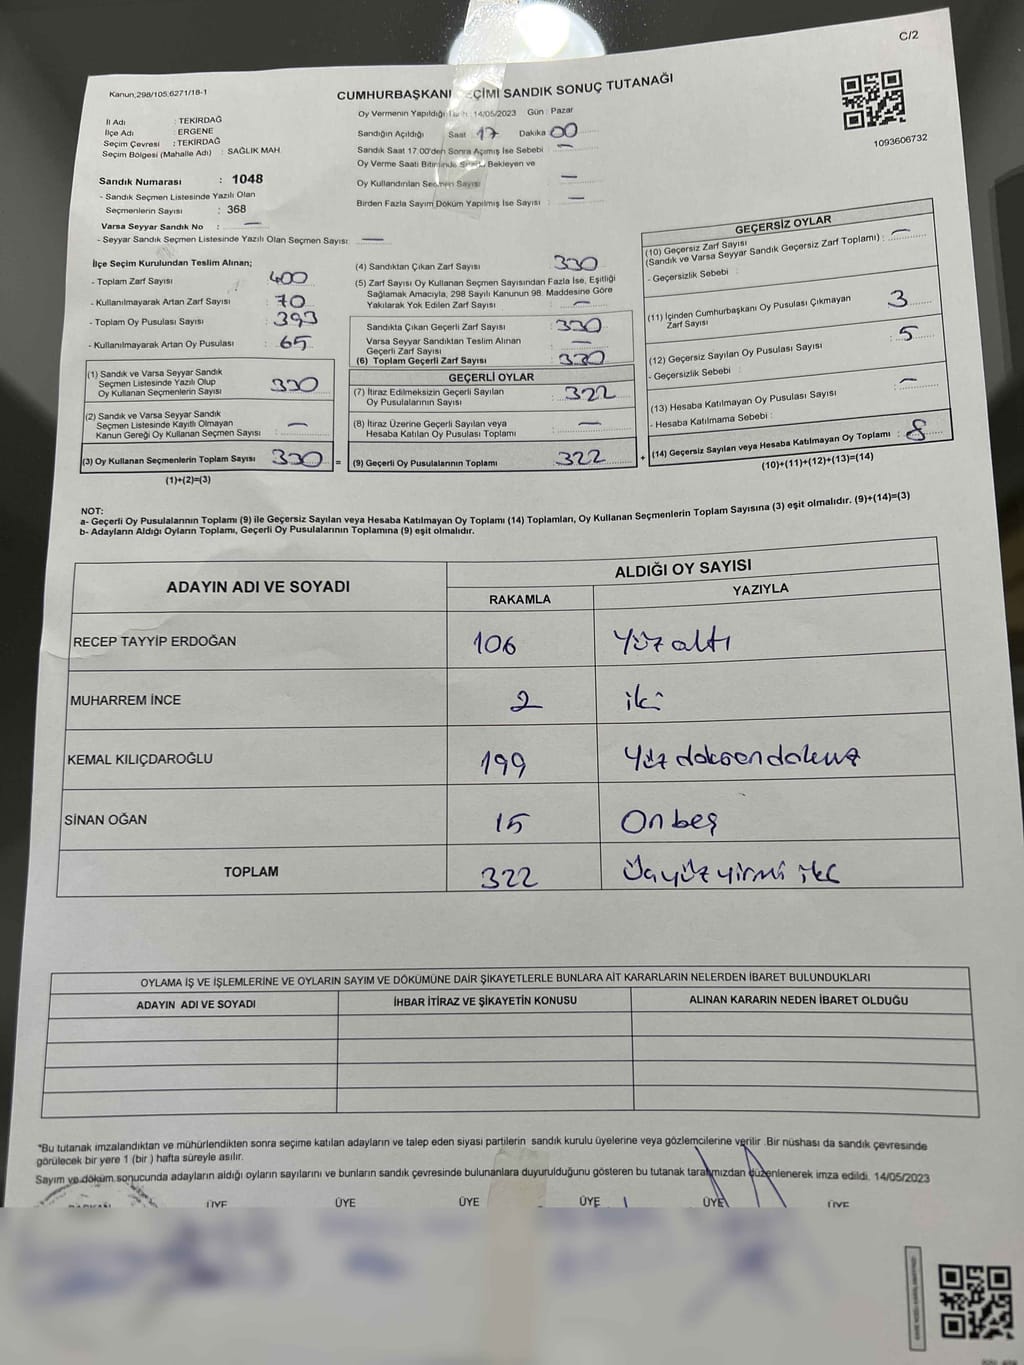 C/2
Kanun,298/105,6271/18-1
CUMHURBAŞKANI SEÇİMİ SANDIK SONUÇ TUTANAĞI
İl Adı : TEKİRDAĞ
İlçe Adı : ERGENE
Seçim Çevresi : TEKİRDAĞ
Seçim Bölgesi (Mahalle Adı) : SAĞLIK MAH.
Sandık Numarası : 1048
- Sandık Seçmen Listesinde Yazılı Olan
Seçmenlerin Sayısı : 368
Varsa Seyyar Sandık No : —
- Seyyar Sandık Seçmen Listesinde Yazılı Olan Seçmen Sayısı: —
Oy Vermenin Yapıldığı 14/05/2023 Gün : Pazar
Sandığın Açıldığı Saat 17 Dakika 00
Sandık Saat 17.00'den Sonra Açılmış İse Sebebi : —
Oy Verme Saati Bitiminde Bekleyen ve
Oy Kullandırılan Seçmen Sayısı —
Birden Fazla Sayım Döküm Yapılmış İse Sayısı : —
1093606732
İlçe Seçim Kurulundan Teslim Alınan;
- Toplam Zarf Sayısı : 400
- Kullanılmayarak Artan Zarf Sayısı : 70
- Toplam Oy Pusulası Sayısı : 393
- Kullanılmayarak Artan Oy Pusulası : 65
(1) Sandık ve Varsa Seyyar Sandık
Seçmen Listesinde Yazılı Olup
Oy Kullanan Seçmenlerin Sayısı : 330
(2) Sandık ve Varsa Seyyar Sandık
Seçmen Listesinde Kayıtlı Olmayan
Kanun Gereği Oy Kullanan Seçmen Sayısı : —
(3) Oy Kullanan Seçmenlerin Toplam Sayısı 330 =
(1)+(2)=(3)
(4) Sandıktan Çıkan Zarf Sayısı 330
(5) Zarf Sayısı Oy Kullanan Seçmen Sayısından Fazla İse, Eşitliği
Sağlamak Amacıyla, 298 Sayılı Kanunun 98. Maddesine Göre
Yakılarak Yok Edilen Zarf Sayısı : —
Sandıkta Çıkan Geçerli Zarf Sayısı : 330
Varsa Seyyar Sandıktan Teslim Alınan
Geçerli Zarf Sayısı : —
(6) Toplam Geçerli Zarf Sayısı : 330
GEÇERLİ OYLAR
(7) İtiraz Edilmeksizin Geçerli Sayılan
Oy Pusulalarının Sayısı : 322
(8) İtiraz Üzerine Geçerli Sayılan veya
Hesaba Katılan Oy Pusulası Toplamı : —
(9) Geçerli Oy Pusulalarının Toplamı : 322 +
GEÇERSİZ OYLAR
(10) Geçersiz Zarf Sayısı
(Sandık ve Varsa Seyyar Sandık Geçersiz Zarf Toplamı) : —
- Geçersizlik Sebebi :
(11) İçinden Cumhurbaşkanı Oy Pusulası Çıkmayan
Zarf Sayısı : 3
(12) Geçersiz Sayılan Oy Pusulası Sayısı : 5
- Geçersizlik Sebebi :
(13) Hesaba Katılmayan Oy Pusulası Sayısı : —
- Hesaba Katılmama Sebebi :
(14) Geçersiz Sayılan veya Hesaba Katılmayan Oy Toplamı : 8
(10)+(11)+(12)+(13)=(14)
NOT:
a- Geçerli Oy Pusulalarının Toplamı (9) ile Geçersiz Sayılan veya Hesaba Katılmayan Oy Toplamı (14) Toplamları, Oy Kullanan Seçmenlerin Toplam Sayısına (3) eşit olmalıdır. (9)+(14)=(3)
b- Adayların Aldığı Oyların Toplamı, Geçerli Oy Pusulalarının Toplamına (9) eşit olmalıdır.
ADAYIN ADI VE SOYADI
ALDIĞI OY SAYISI
RAKAMLA YAZIYLA
RECEP TAYYİP ERDOĞAN 106 Yüz altı
MUHARREM İNCE 2 iki
KEMAL KILIÇDAROĞLU 199 Yüz doksan dokuz
SİNAN OĞAN 15 On beş
TOPLAM 322 Üçyüz yirmi iki
OYLAMA İŞ VE İŞLEMLERİNE VE OYLARIN SAYIM VE DÖKÜMÜNE DAİR ŞİKAYETLERLE BUNLARA AİT KARARLARIN NELERDEN İBARET BULUNDUKLARI
ADAYIN ADI VE SOYADI İHBAR İTİRAZ VE ŞİKAYETİN KONUSU ALINAN KARARIN NEDEN İBARET OLDUĞU
"Bu tutanak imzalandıktan ve mühürlendikten sonra seçime katılan adayların ve talep eden siyasi partilerin sandık kurulu üyelerine veya gözlemcilerine verilir .Bir nüshası da sandık çevresinde
görülecek bir yere 1 (bir ) hafta süreyle asılır.
Sayım ve döküm sonucunda adayların aldığı oyların sayılarını ve bunların sandık çevresinde bulunanlara duyurulduğunu gösteren bu tutanak tarafımızdan düzenlenerek imza edildi. 14/05/2023
ÜYE ÜYE ÜYE ÜYE ÜYE ÜYE